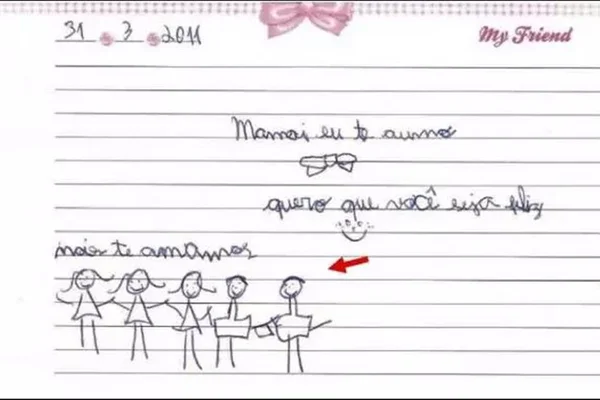 31 3 2011
My Friend
Mamãi eu te aumo
quero que você seja feliz
nois te amamos